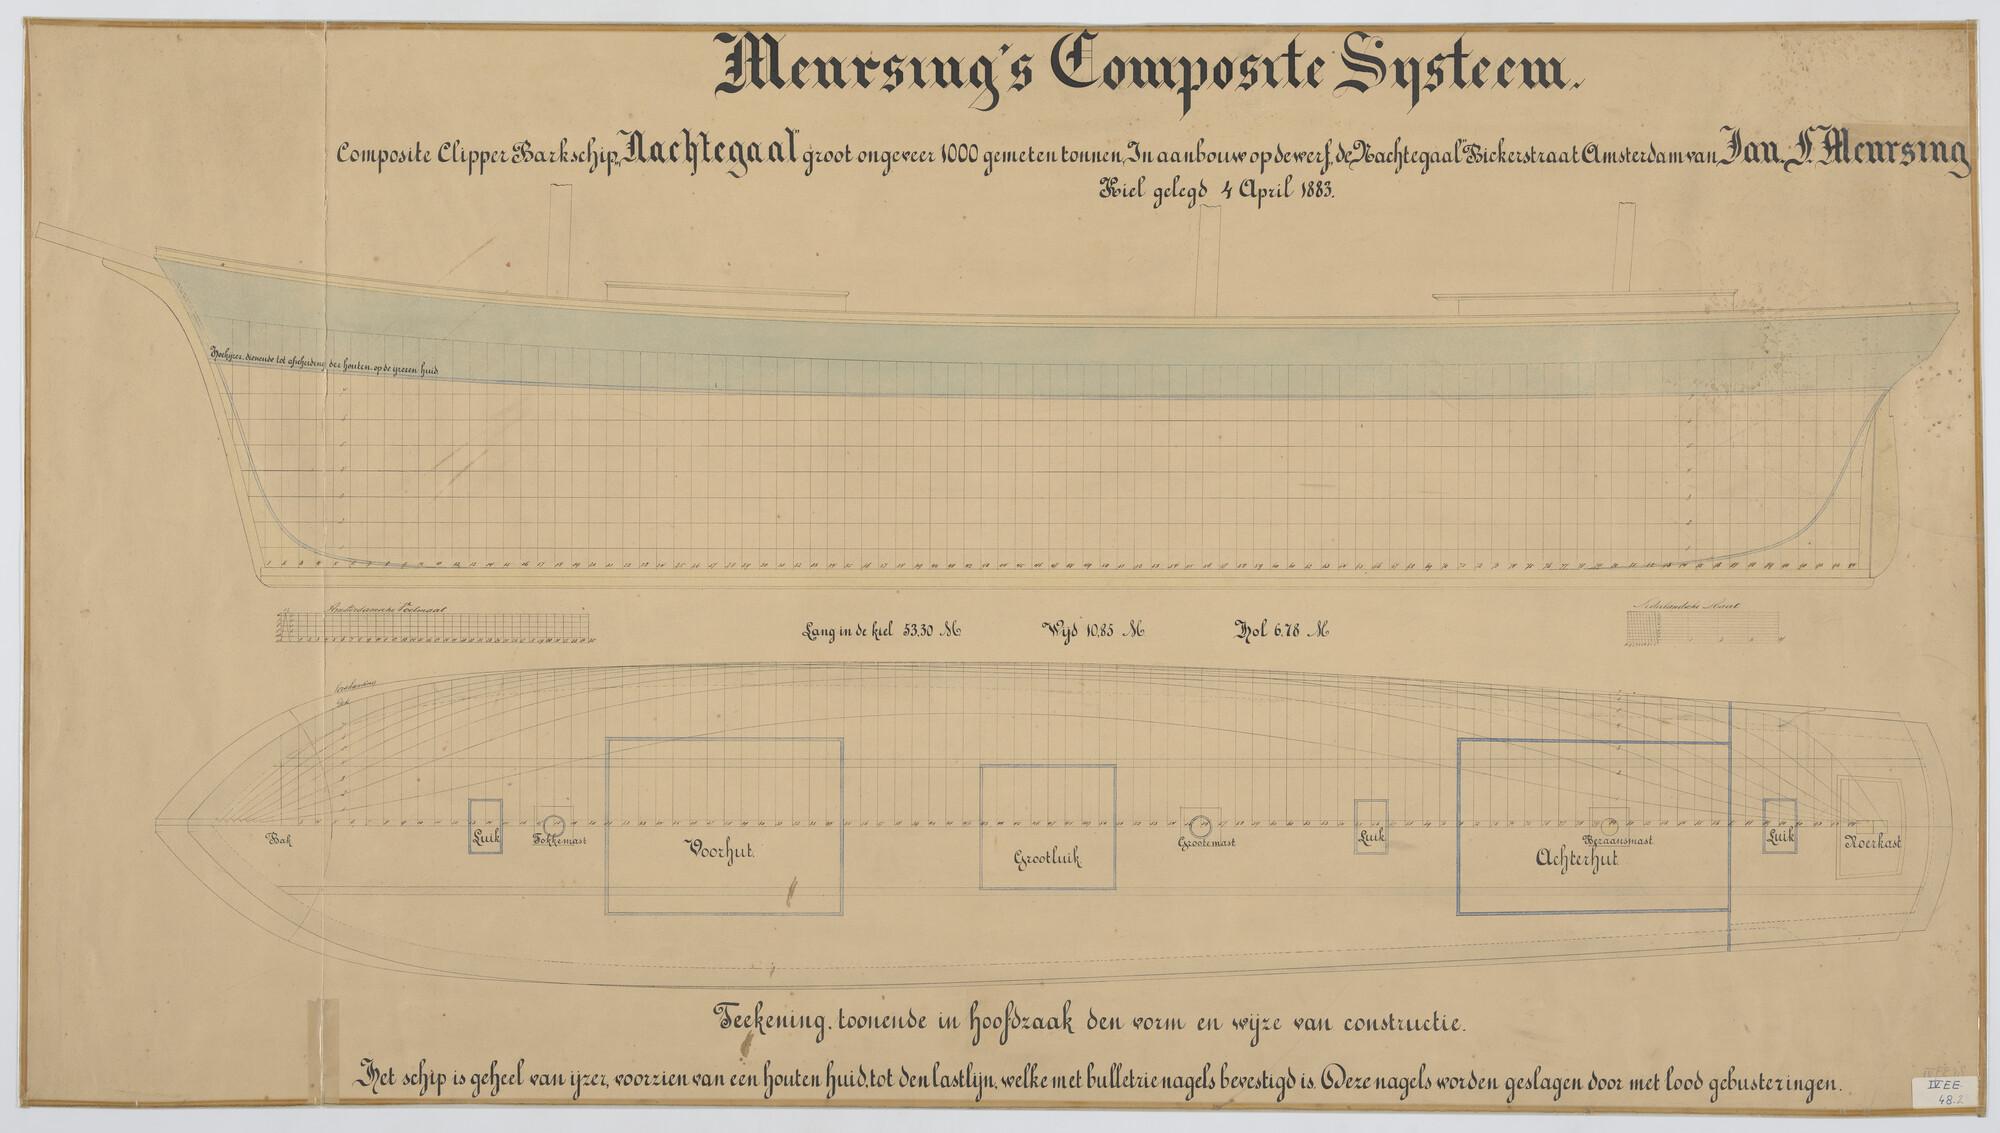 Meursing's Composite Systeem.
Composite Clipper Barkschip „Nachtegaal" groot ongeveer 1000 gemeten tonnen, In aanbouw op de werf „de Nachtegaal" Bickerstraat Amsterdam van Jan. F. Meursing
Kiel gelegd 4 April 1883.
Hoekijzer dienende tot afscheiding der houten op de ijzeren huid
Amsterdamsche Voetmaat
Nederlandsche Maat
Lang in de kiel 53,30 M Wijd 10,85 M Hol 6,78 M
Bak
Luik
Fokkemast
Voorhut.
Grootluik
Grootemast
Luik
Bezaansmast
Achterhut
Luik
Roerkast
Teekening. toonende in hoofdzaak den vorm en wijze van constructie.
Het schip is geheel van ijzer, voorzien van een houten huid, tot den lastlijn, welke met bulletrie nagels bevestigd is. Deze nagels worden geslagen door met lood gebuste ringen.
IV EE
48.2